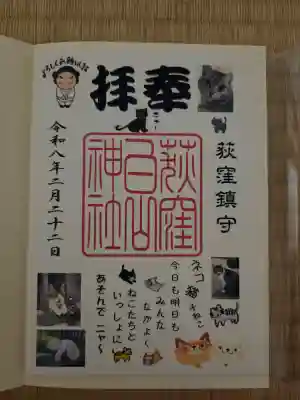 奉拝
ニャー
荻窪鎮守
荻窪
白山
神社
令和八年二月二十二日
ネコ 猫 ネコ
今日も明日も
みんな
なかよく
ねこたちと
いっしょに
あそんで ニャ〜